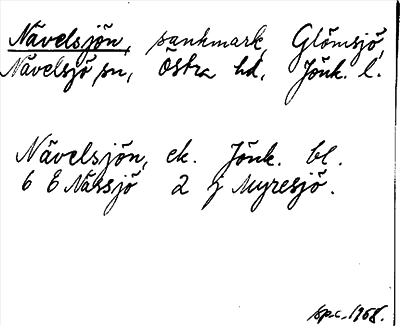 Nävelsjön, sankmark, Glömsjö,
Nävelsjö sn, Östra hd, Jönk. l.
Nävelsjön, ek. Jönk. bl.
6 E Nässjö 2 j Myresjö.
1968.